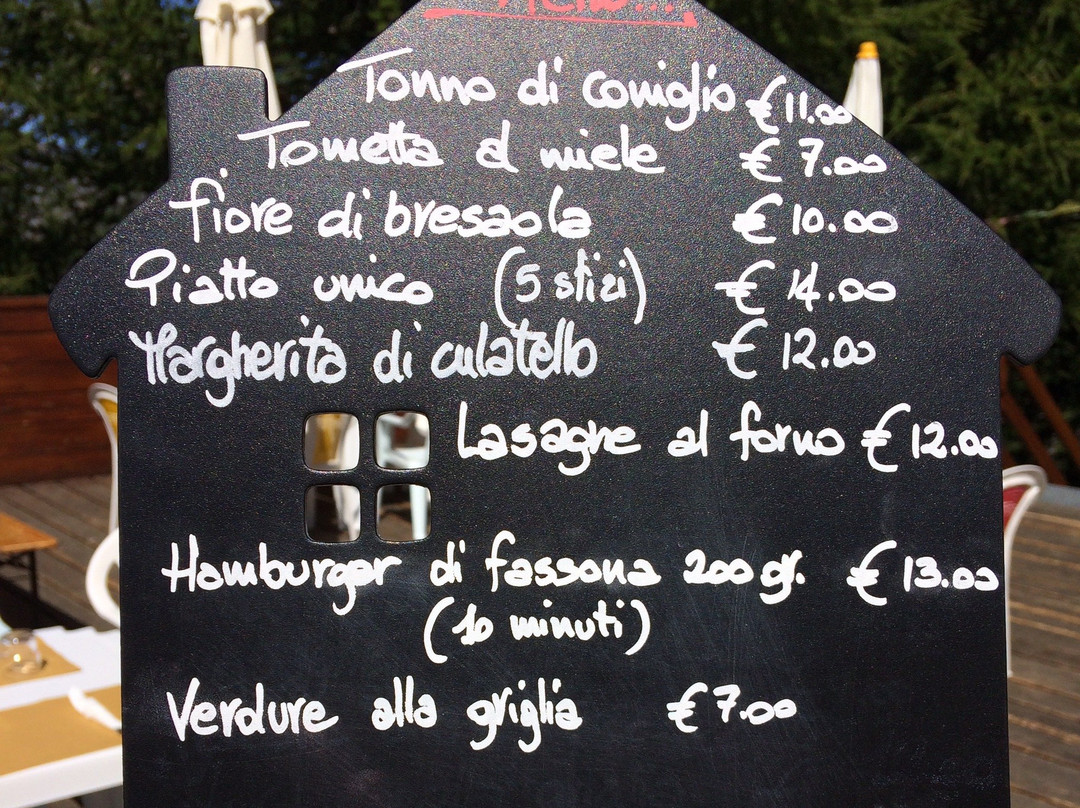 Menù...
Tonno di coniglio € 11.00
Tometta al miele € 7.00
fiore di bresaola € 10.00
Piatto unico (5 sfizi) € 14.00
Margherita di culatello € 12.00
Lasagne al forno € 12.00
Hamburger di fassona 200 gr. € 13.00
(10 minuti)
Verdure alla griglia € 7.00